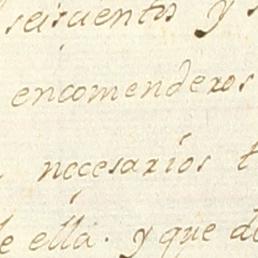 seiscientos y
encomenderos
necesarios t
de ella. y que de